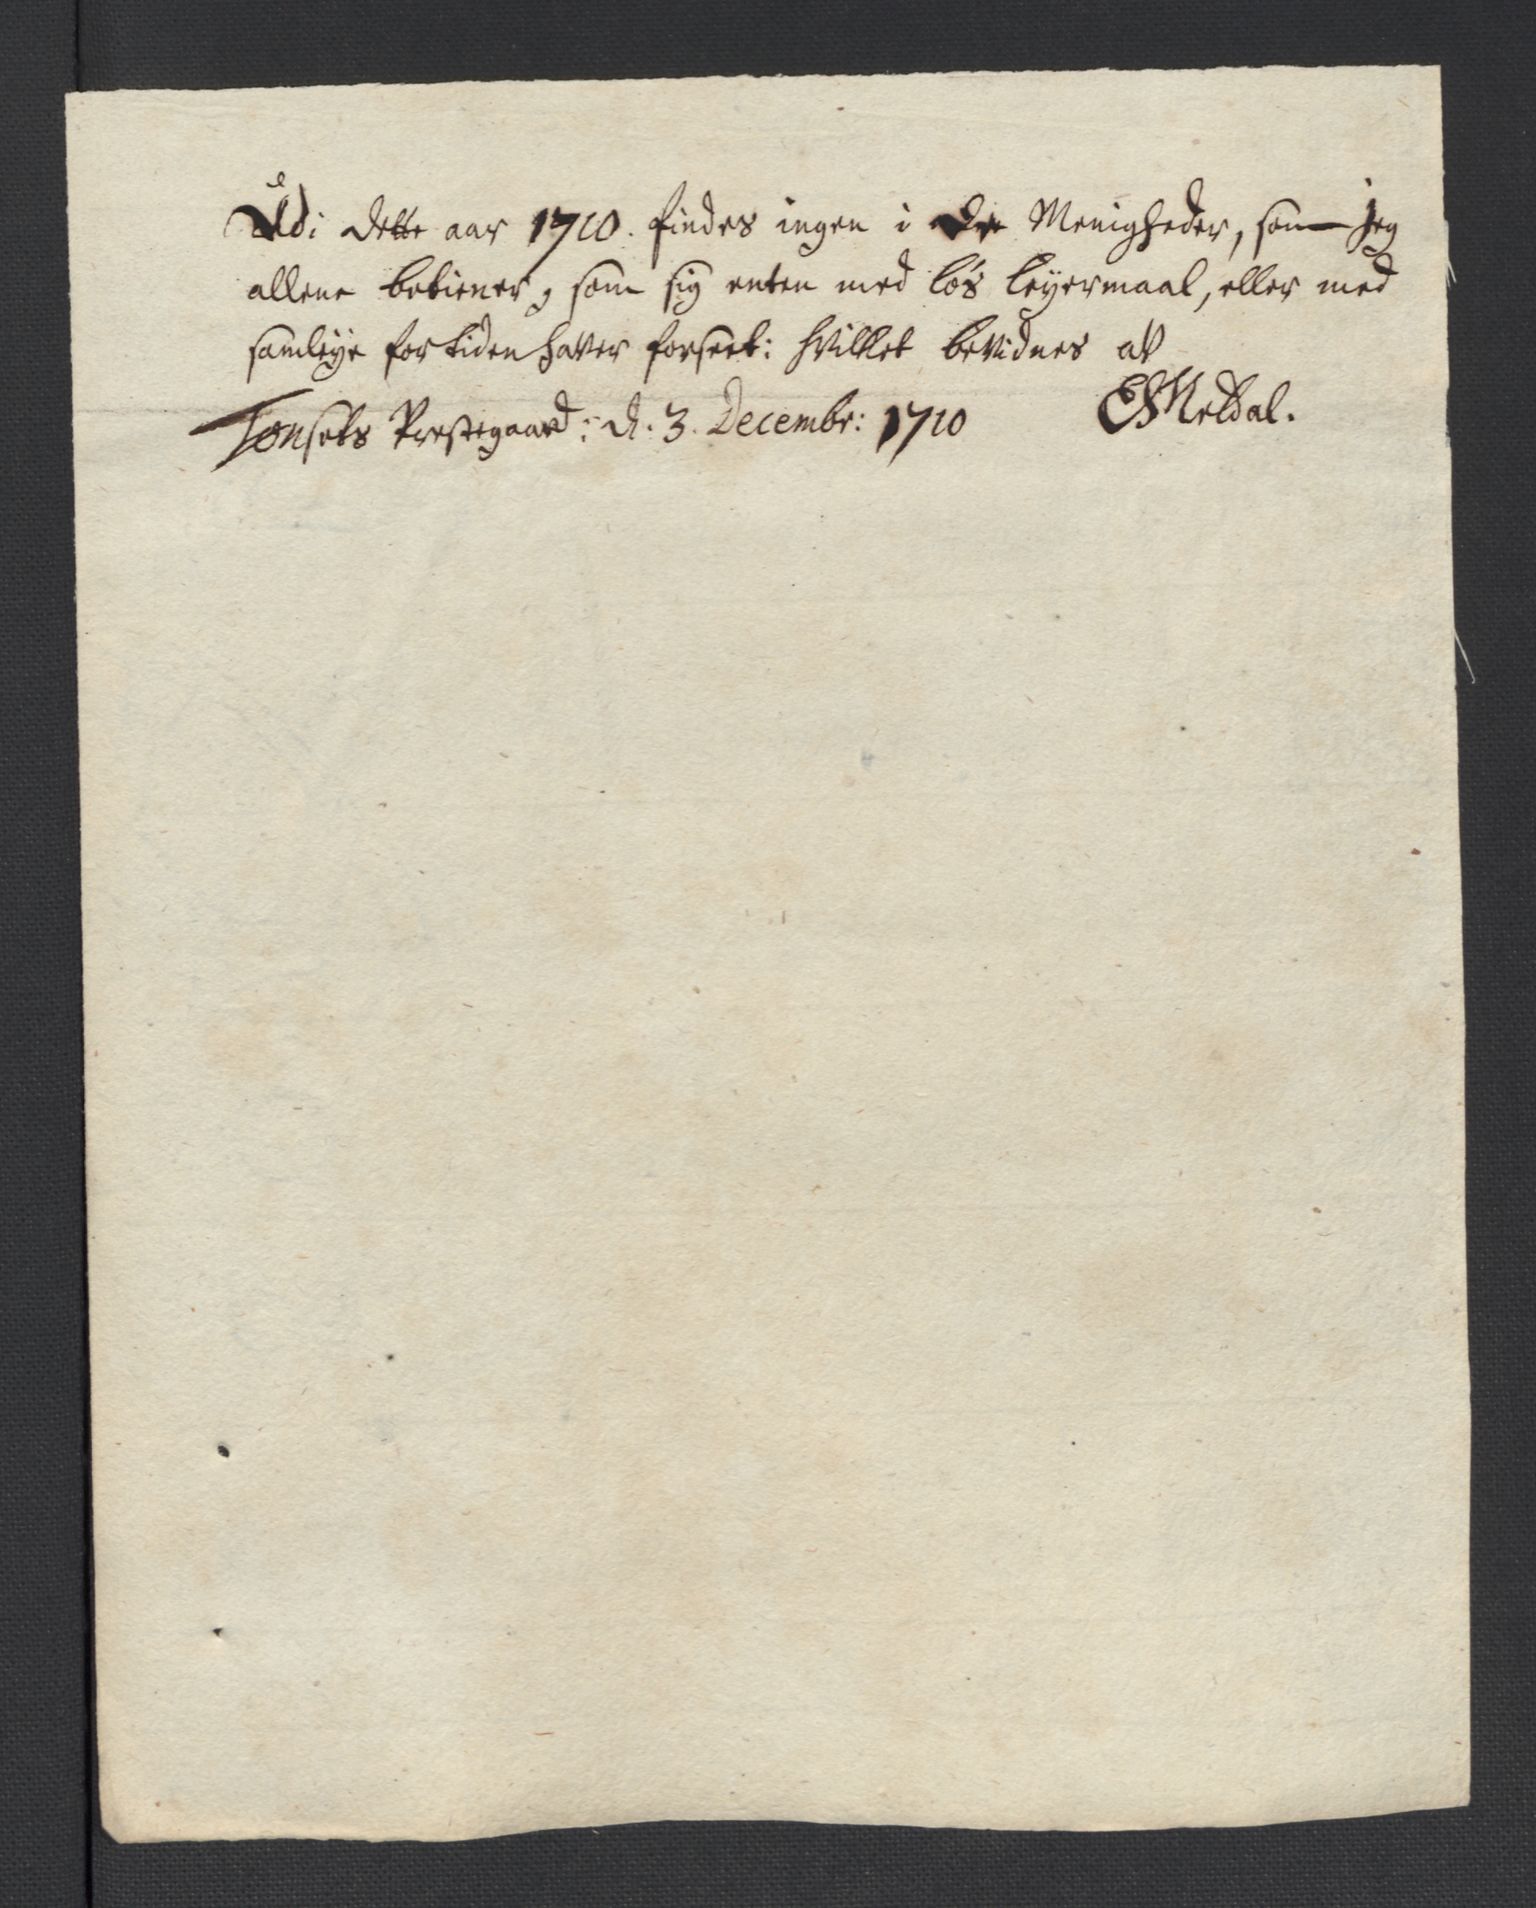 Udi dette aar 1710. findes ingen i de Menigheder, som jeg
allene betiener, som sig enten med løs leyermaal, eller med
samleye for tiden haver forseet: hvilket bevidnes av
Tønsets Prestegaard: d. 3. Decembr: 1710 Meldal.